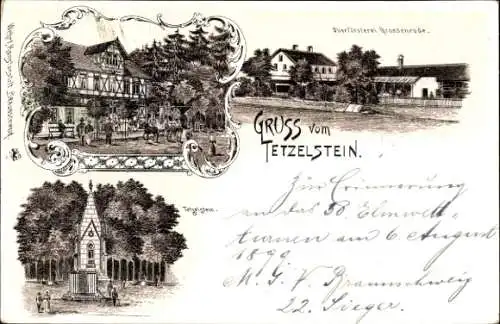 Oberförsterei Brunsenrode.
GRUSS VOM
TETZELSTEIN.
Tetzelstein.
Zur Erinnerung
an das 50. Elmwett-
turnen am 6. August
1899
M. T. V. Braunschweig
22. Sieger.